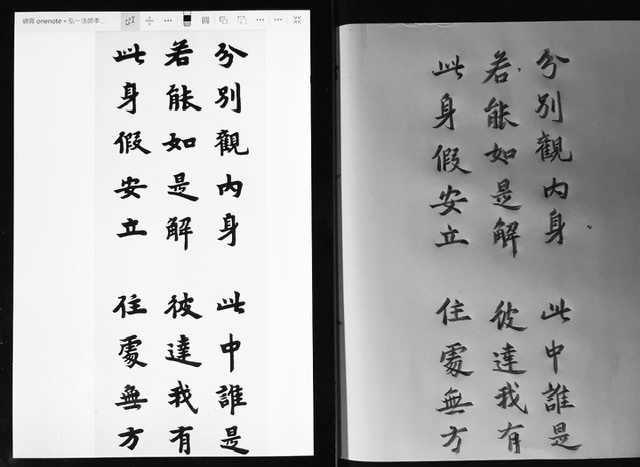 網頁 onenote » 弘一法師李...
分別觀內身 此中誰是
若能如是解 彼達我有
此身假安立 住處無方
分別觀內身 此中誰是
若能如是解 彼達我有
此身假安立 住處無方